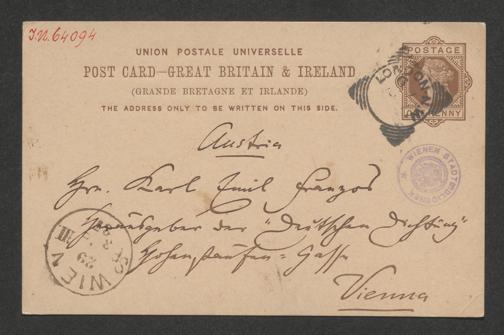 I.N. 64094
UNION POSTALE UNIVERSELLE
POST CARD—GREAT BRITAIN & IRELAND
(GRANDE BRETAGNE ET IRLANDE)
THE ADDRESS ONLY TO BE WRITTEN ON THIS SIDE.
POSTAGE
ONE PENNY
LONDON N.W.
Austria
Hrn. Karl Emil Franzos
Herausgeber der "Deutschen Dichtung"
Hohenstaufen-Gasse
Vienna
WIENER STADTBIBLIOTHEK
WIEN